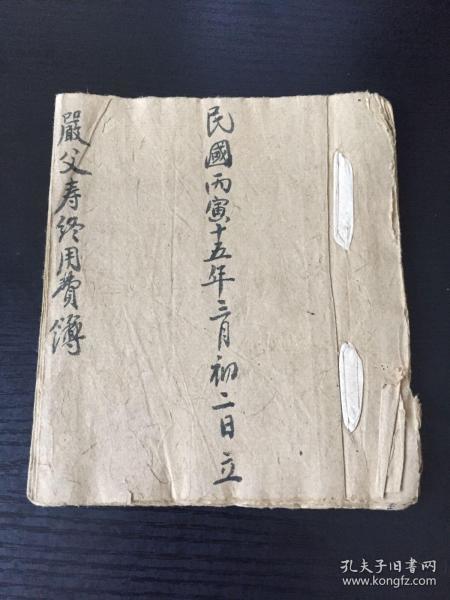 民國丙寅十五年三月初二日立
嚴父寿终用費簿
孔夫子旧书网
www.kongfz.com